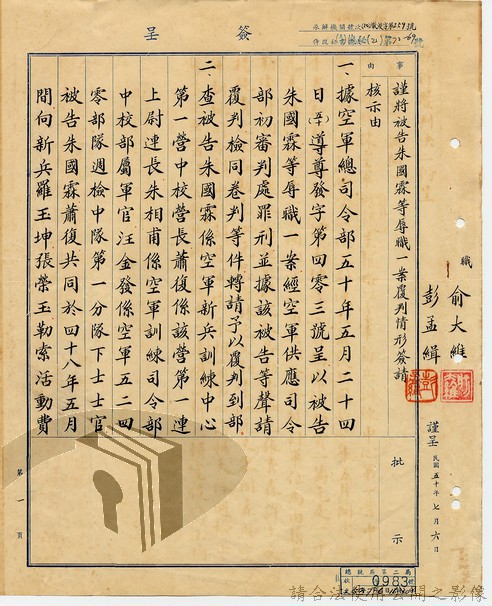 簽呈
事由
謹將被告朱國霖等辱職一案覆判情形簽請
核示由
職
俞大維
彭孟緝
謹呈
民國五十年七月六日
一、據空軍總司令部五十年五月二十四
日(50)導尊發字第四零三號呈以被告
朱國霖等辱職一案經空軍供應司令
部初審判處罪刑並據該被告等聲請
覆判檢同卷判等件轉請予以覆判到部
二、查被告朱國霖係空軍新兵訓練中心
第一營中校營長蕭復係該營第一連
上尉連長朱相甫係空軍訓練司令部
中校部屬軍官汪金發係空軍五二四
零部隊週檢中隊第一分隊下士士官
被告朱國霖蕭復共同於四十八年五月
間向新兵羅玉坤張榮玉勒索活動費
批示
第一頁
總統府第二局
0983
請合法使用公開之影像